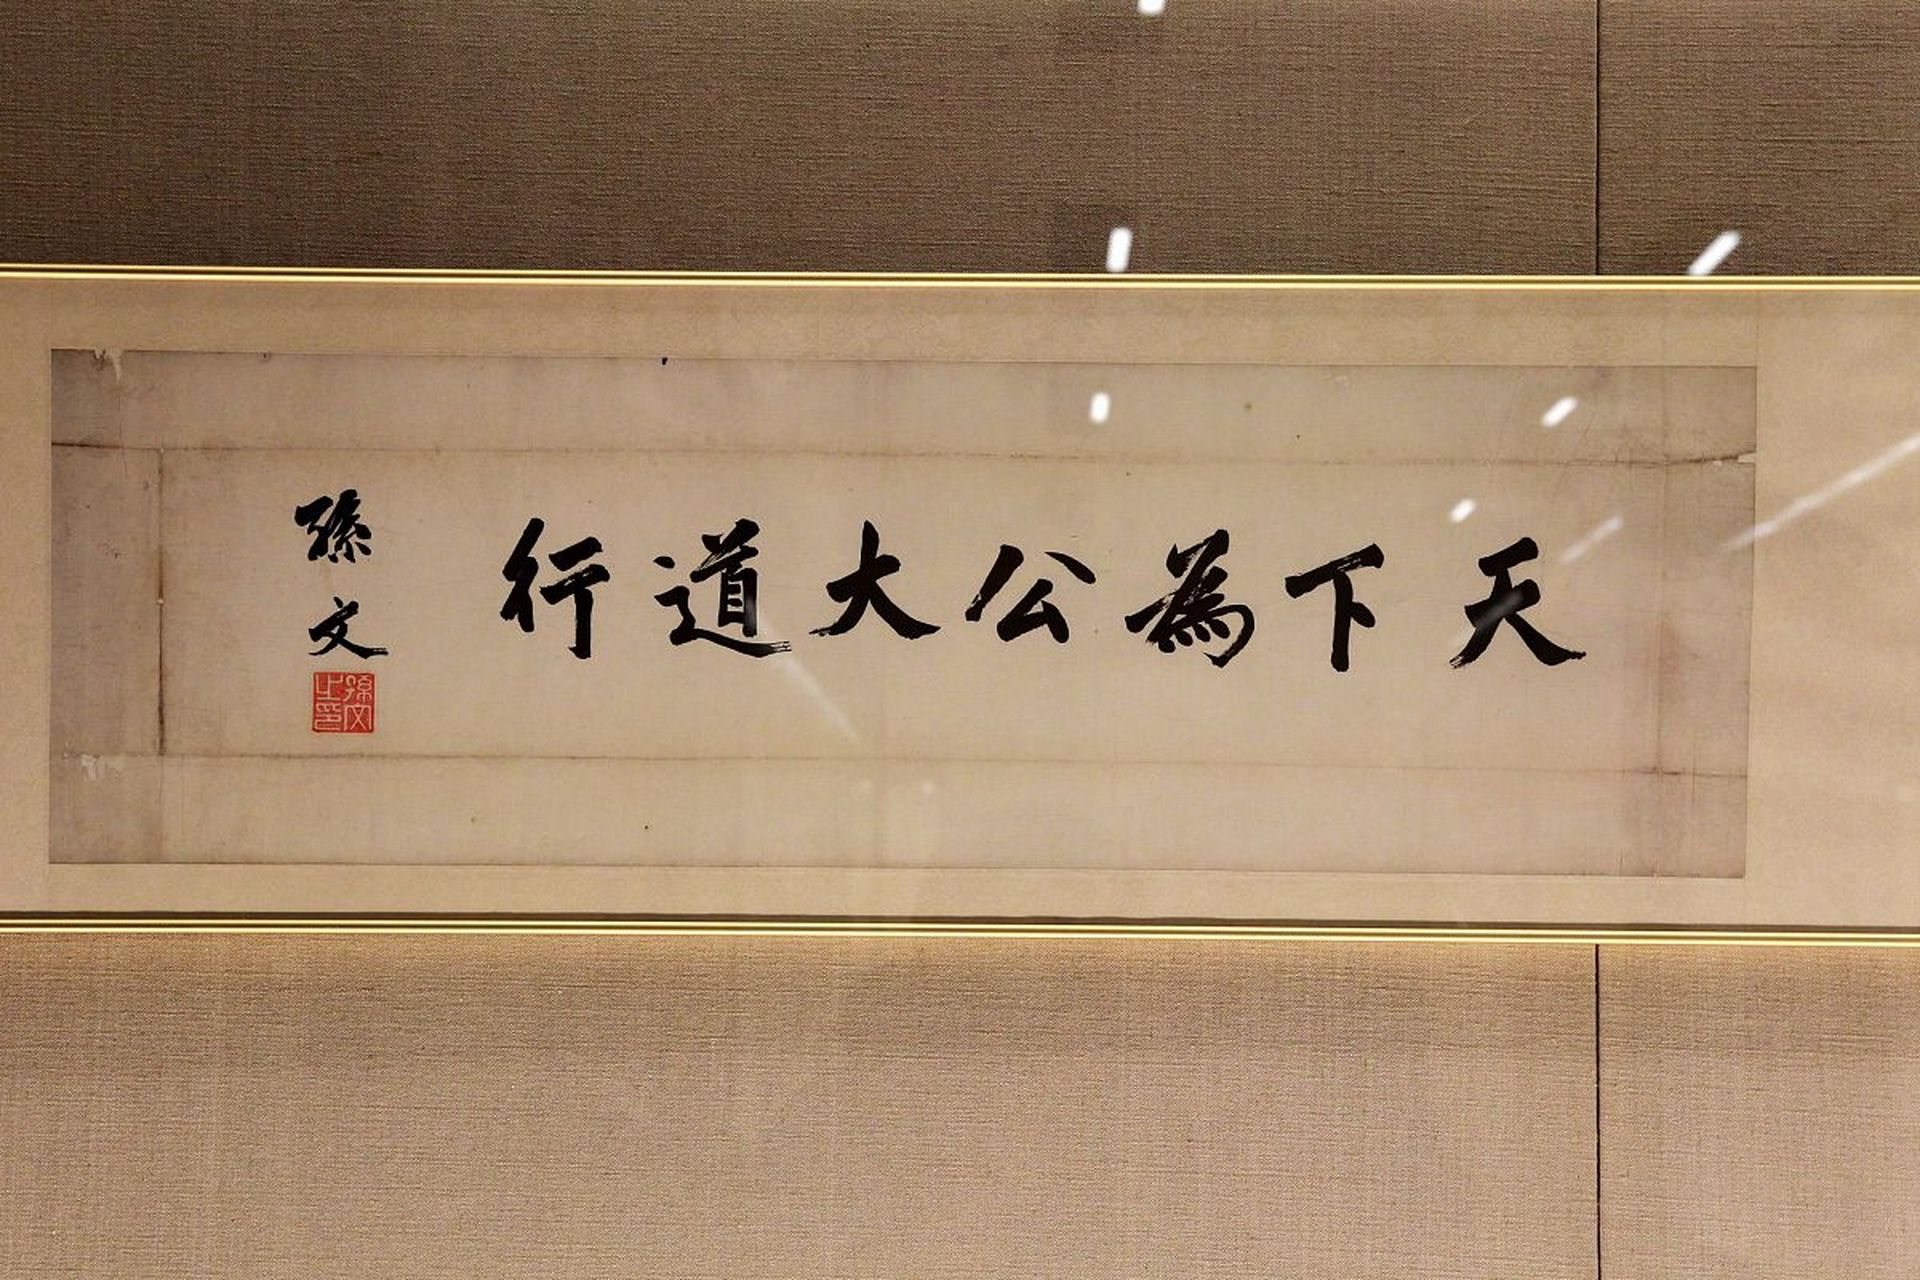 天下為公大道行
孫文
孫文之印